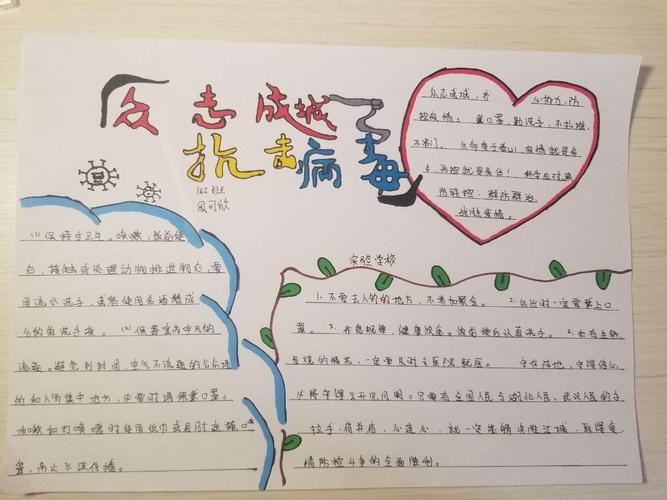 众志成城
抗击病毒
众志成城，齐心协力，防
控疫情。戴口罩，勤洗手，不扎堆，
不串门。生命重于泰山，疫情就是命
令，防控就是责任！科学应对，
防联控，群防群治，
战胜疫情。
165班
实验学校
(1)保持手卫生。咳嗽、饭前便
后、接触或处理动物排泄物后，要
用流水洗手，或者使用含酒精成
分的免洗手液。(2)保持室内空气的
流通。避免到封闭、空气不流通的公众场
所和人多集中地方，必要时请佩戴口罩。
咳嗽和打喷嚏时使用纸巾或屈肘遮掩口
鼻，防止飞沫传播。
1.不要去人多的地方，不参加聚会。2.外出时一定带上口
罩。3.作息规律，健康饮食。饭前便后认真洗手。4.如有
发烧的情况，一定要及时去医院就医。守在阵地，守得信心，
必将守得云开见月明。只要有全国人民与湖北人民、武汉人民的手
拉手，肩并肩，心连心，就一定能够决胜江城，取得疫
情防控斗争的全面胜利。